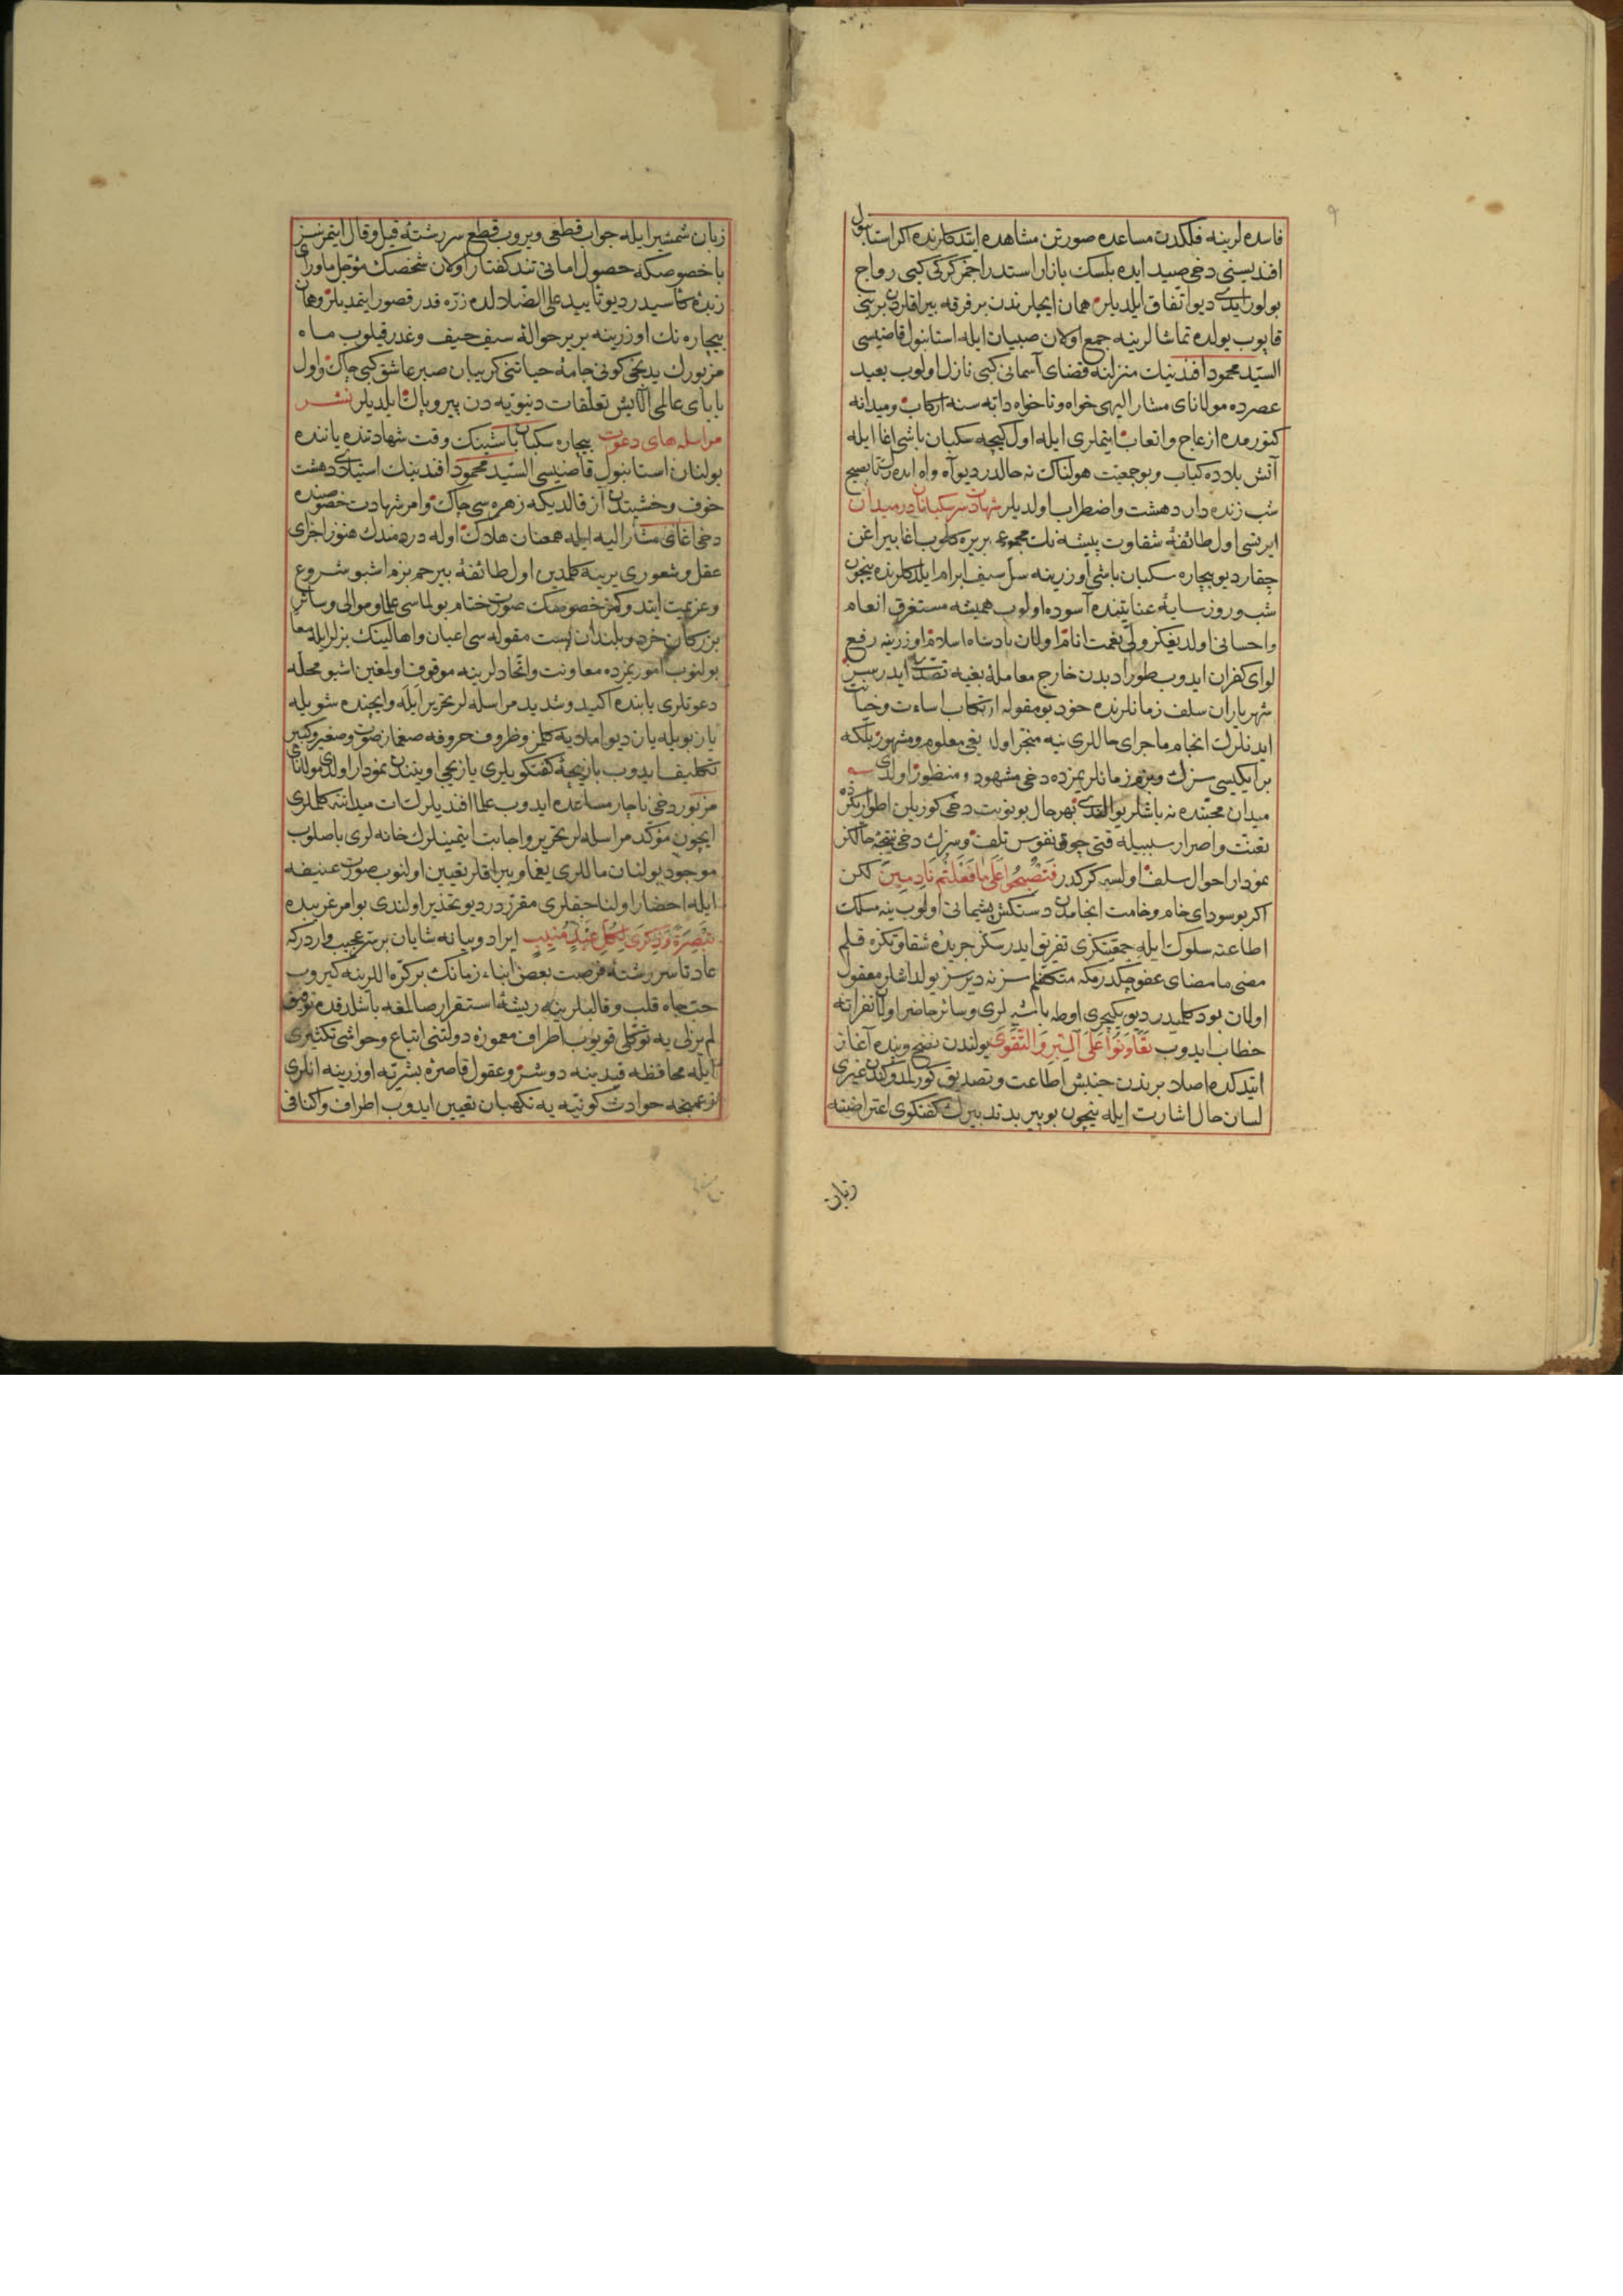 ۹
فاسده لرینه فلکدن مساعده صورتن مشاهده ایتدکلرنده اکر استانبول
افندیسنی دخی صید ایده بلسک بازار استدراجمز کرکی کبی رواج
بولور ایدی دیو اتفاق ایلدیلر همان ایچلرندن بر فرقه بیراقلردن برینی
قاپوب یولده تماشالرینه جمع اولان صبیان ایله استانبول قاضیسی
السید محمود افندینك منزلنه قضای آسمانی کبی نازل اولوب بعید
عصرده مولانای مشار الیهی خواه و ناخواه دابه سنه ارکاب و میدانه
کتورمده ازعاج و اتعاب ایتملری ایله اول کیجه سکبان باشی اغا ایله
آتش بلاده کباب و بو جمعیت هولناك نه حالدر دیو آه و اه ایده رك تا بصبح
شب زنده دار دهشت و اضطراب اولدیلر شهادت سر سکبانان در میدان
ایرتسی اول طائفهٔ شقاوت پیشه نك مجموعه بر یره کلوب اغا بیراغن
چقار دیو بیچاره سکبان باشی اوزرینه سل سیف ابرام ایلدکلرنده نیچون
شب و روز سایهٔ عنایتنده آسوده اولوب همیشه مستغرق انعام
و احسانی اولدیغکز ولی نعمت انام اولان پادشاه اسلام اوزرینه رفع
لوای کفران ایدوب طور ادبدن خارج معاملهٔ بغیه تصدی ایدرسز
شهریاران سلف زمانلرنده خود بو مقوله ارتکاب اساءت و خیانت
ایدنلرك انجام ماجرای حاللری نیه منجر اولدیغی معلوم و مشهور بلکه
بر ایکیسی سزك و بزم زمانلریمزده دخی مشهود و منظور اولدی
میدان محنتده نه باشلر یوالندی بهر حال بو نوبت دخی کوزیلن اطواریکزده
تعنت و اصرار سببیله قتی چوق نفوس تلف و سزك دخی نتیجهٔ حالکز
نمودار احوال سلف اولسه کرکدر فَتُصْبِحُوا عَلَى مَا فَعَلْتُمْ نَادِمِينَ لکن
اکر بو سودای خام و خامت انجامدن دستکش پشیمانی اولوب ینه مسلك
اطاعته سلوك ایله جمعیتکزی تفریق ایدرسکز جریدهٔ شقاوتکزه قلم
مضی ما مضای عفو چکدرمکه متکفلم سزنه دیرسز یولداشلر معقول
اولان بودر کلیدر دیو یکیچری اوطه باشیلری و سائر حاضر اولان نفراته
خطاب ایدوب تَعَاوَنُوا عَلَى الْبِرِّ وَالتَّقْوَى یولندن نصح و پنده آغاز
ایتدکده اصلا بریندن جنبش اطاعت و تصدیق کورلمدوکندن غیری
لسان حال اشارت ایله نیچون بو پیر بد تدبیرك کفتکوی اعتراضنه
زبان
زبان شمشیر ایله جواب قطعی ویروب قطع سر رشتهٔ قیل و قال ایتمزسز
با خصوصکه حصول امانی تند کفتار اولان شخصك مؤجل ماورای
زبده کاسیدر دیو تأیید علی الضلالده ذره قدر قصور ایتمدیلر و همان
بیچاره نك اوزرینه بر بر حوالهٔ سیف حیف و غدر قیلوب ماه
مزبورك یدنجی کونی جامهٔ حیاتنی کریبان صبر عاشق کبی چاك و اول
بابای عالمی آلایش تعلقات دنیویه دن پیر و پاك ایلدیلر نشر
مراسله های دعوت بیچاره سکبان باشینك وقت شهادتنده یاننده
بولنان استانبول قاضیسی السید محمود افندینك استیلای دهشت
خوف و خشیتدن آز قالدیکه زهره سی چاك و امر شهادت خصوصنده
دخی اغای مشار الیه ایله همعنان هلاك اوله دردمندك هنوز اجزای
عقل و شعوری یرینه کلمدین اول طائفهٔ بیرحم بزم اشبو شروع
و عزیمت ایتدوکمز خصوصك صورت ختام بولماسی علما و موالی و سائر
بزرکان خرد و بلند ان پست مقوله سی اعیان و اهالینك بزلر ایله معا
بولنوب امور یمزده معاونت و اتحادلرینه موقوف اولمغین اشبو محله
دعوتلری بابنده اکید و شدید مراسله لر تحریر ایله و ایچنده شویله
یاز بویله یاز دیو املایه کلمز و ظروف حروفه صغماز صوت و صغیر و کبیر
تکلیف ایدوب بازیچهٔ کفتکویلری یازیجی اوینندن نمودار اولدی مولانای
مزبور دخی ناچار مساعده ایدوب علما افندیلرك ات میداننه کلملری
ایچون مؤکد مراسله لر تحریر و اجابت ایتمینلرك خانه لری باصلوب
موجود بولنان ماللری یغما و بیراقلر تعیین اولنوب صورت عنیفه
ایله احضار اولناجقلری مقرردر دیو تحذیر اولندی بو امر غریبده
تَبْصِرَةً وَذِكْرَى لِكُلِّ عَبْدٍ مُنِيبٍ ایراد و بیانه شایان بر سر عجیب واردرکه
عادتا سر رشتهٔ فرصت بعض ابناء زمانك بر کره اللرینه کیروب
حب جاه قلب و قالبلرینه ریشهٔ استقرار صالمغه باشلدقده توفیق
لم یزلی یه توکلی قویوب اطراف معمورهٔ دولتنی اتباع و حواشی تکثیری
ایله محافظه قیدینه دوشر و عقول قاصرهٔ بشریه اوزرینه انلری
حوادث کونیه یه نکهبان تعیین ایدوب اطراف و اکنافی